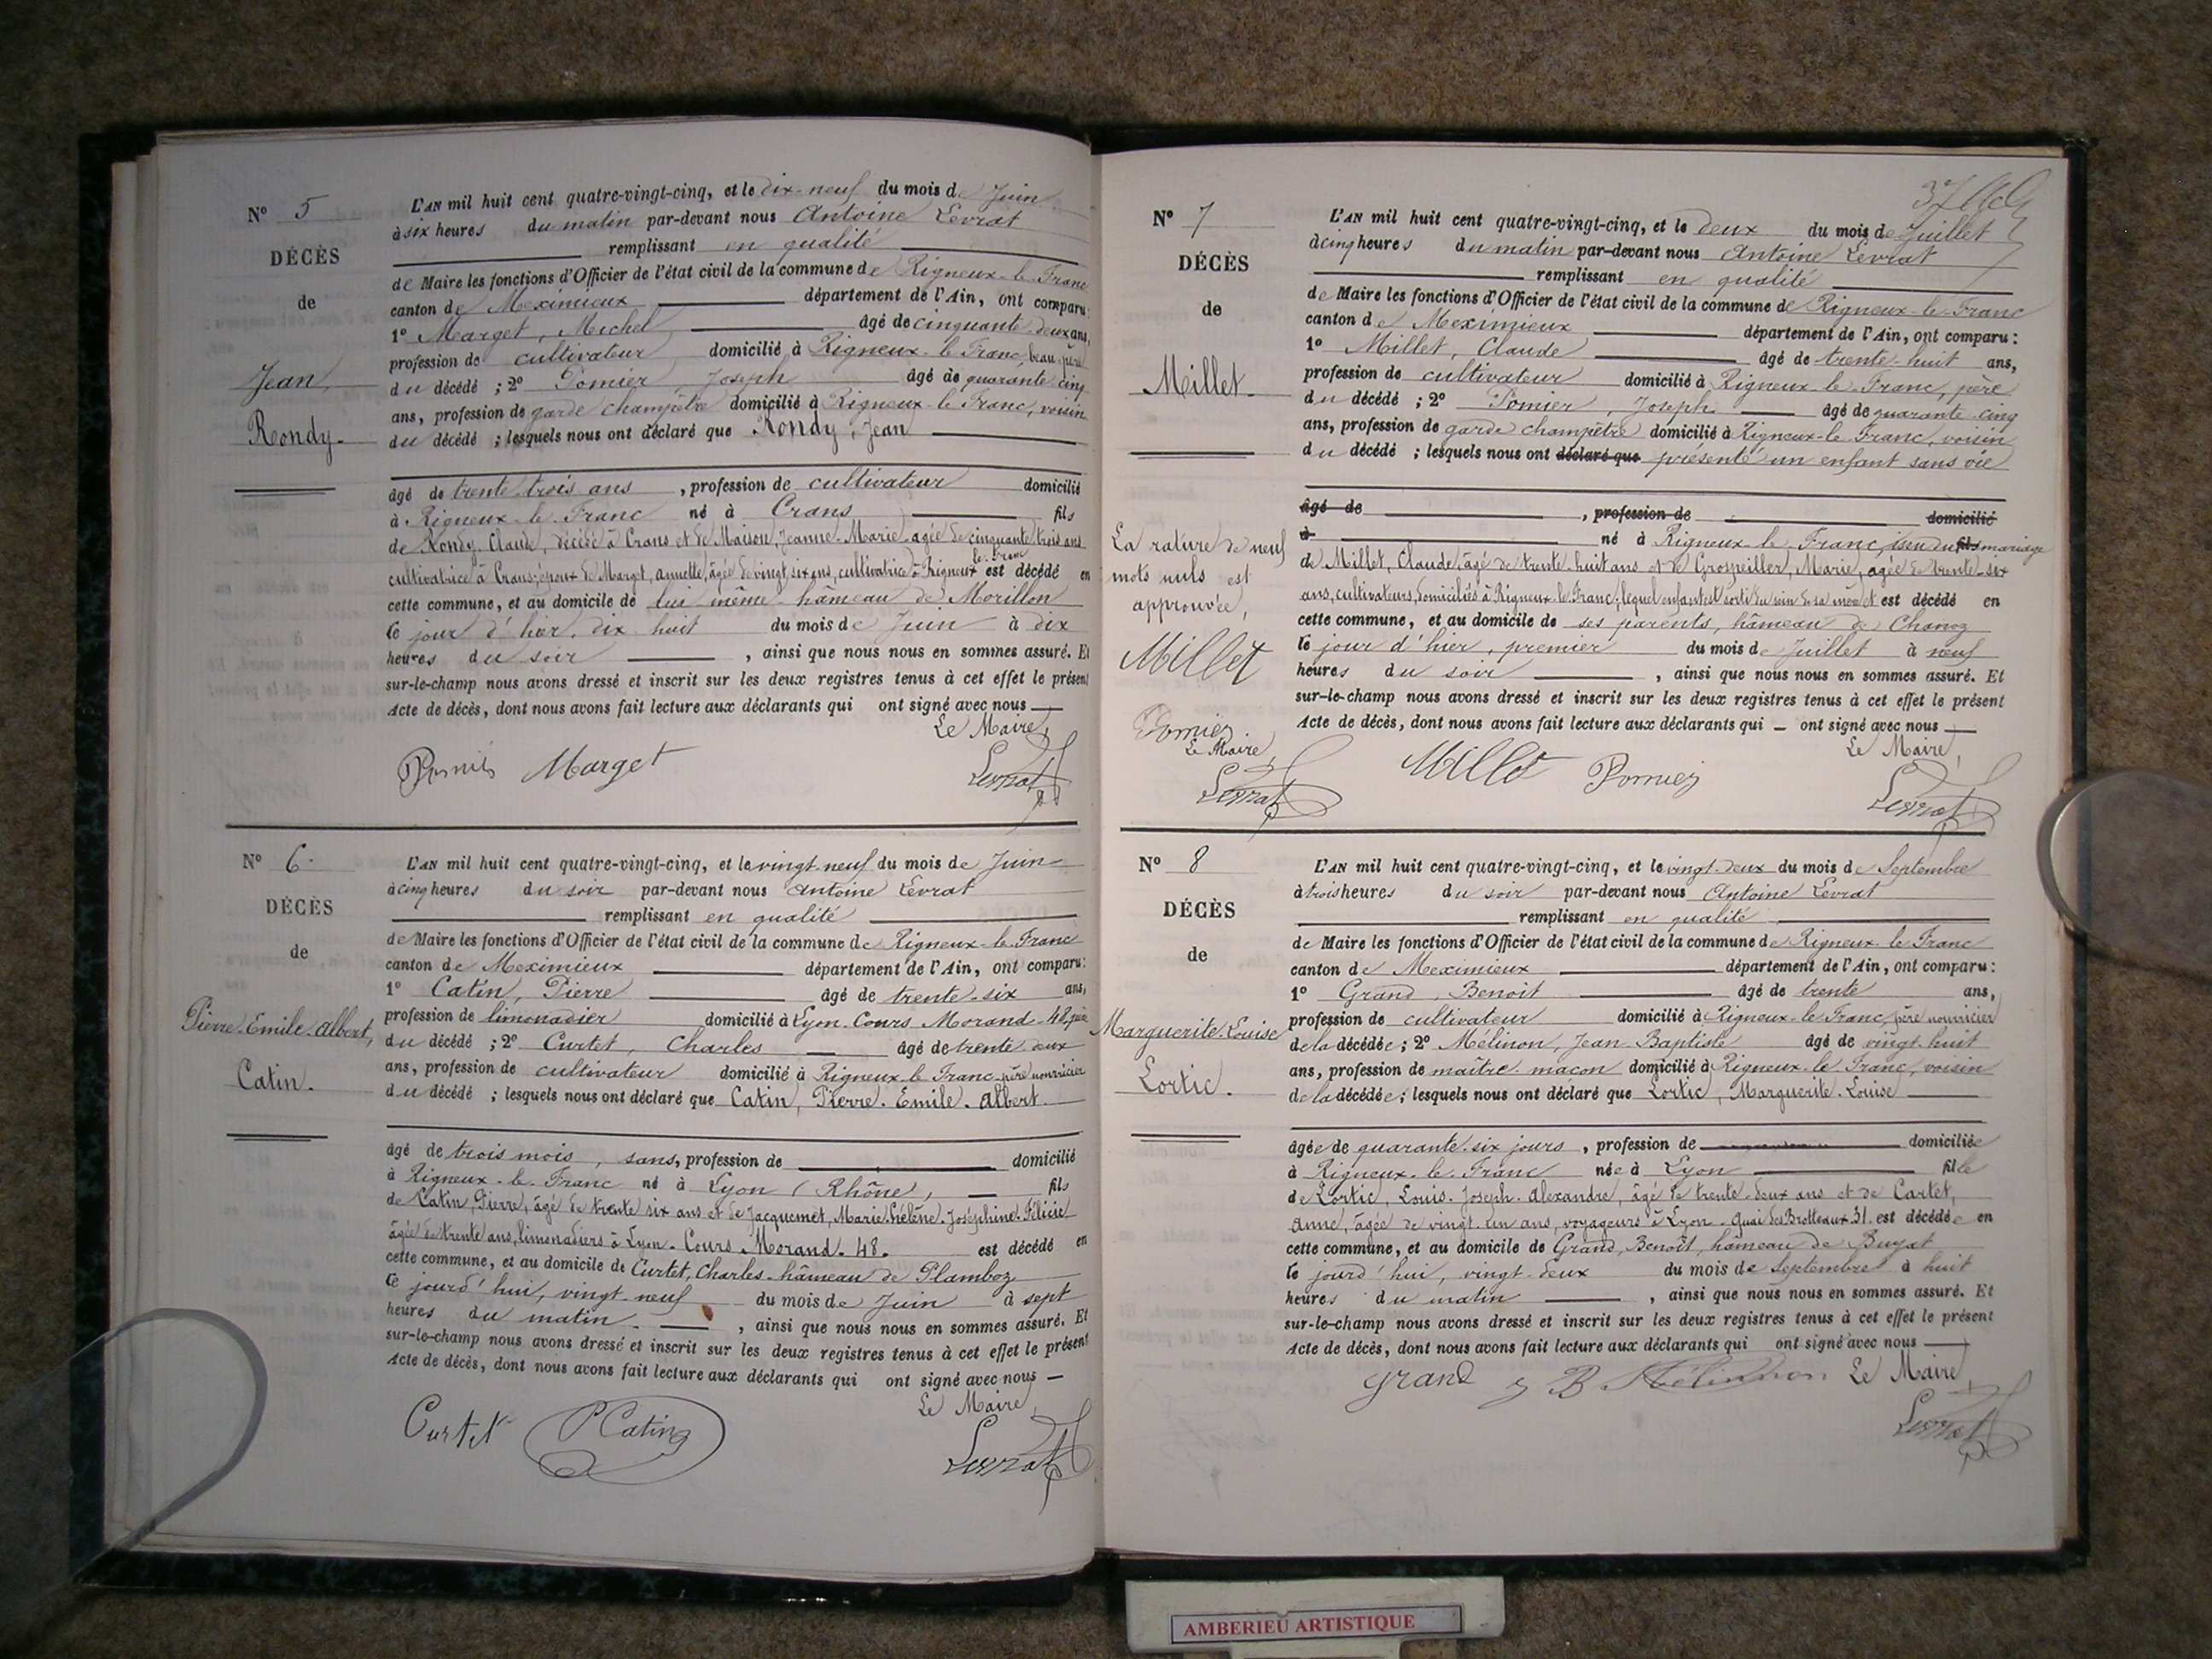 N° 5
DÉCÈS
de
Jean
Rondy.
L'AN mil huit cent quatre-vingt-cinq, et le dix-neuf du mois de Juin
à six heures du matin par-devant nous Antoine Levrat
remplissant en qualité
de Maire les fonctions d'Officier de l'état civil de la commune de Rigneux-le-Franc
canton de Meximieux département de l'Ain, ont comparu:
1° Marget, Michel âgé de cinquante-deux ans,
profession de cultivateur domicilié à Rigneux-le-Franc, beau-père
du décédé ; 2° Pomier, Joseph âgé de quarante cinq
ans, profession de garde champêtre domicilié à Rigneux-le-Franc, voisin
du décédé ; lesquels nous ont déclaré que Rondy, Jean
âgé de trente-trois ans , profession de cultivateur domicilié
à Rigneux-le-Franc né à Crans fils
de Rondy, Claude, décédé à Crans et de Maison, Jeanne-Marie, agée de cinquante trois ans
cultivatrice à Crans, époux de Marget, annette, âgée de vingt six ans, cultivatrice à Rigneux le-Franc est décédé en
cette commune, et au domicile de lui même hâmeau de Morillon
le jour d'hier, dix huit du mois de Juin à dix
heures du soir , ainsi que nous nous en sommes assuré. Et
sur-le-champ nous avons dressé et inscrit sur les deux registres tenus à cet effet le présent
Acte de décès, dont nous avons fait lecture aux déclarants qui ont signé avec nous
Le Maire,
Marget Levrat
N° 6.
DÉCÈS
de
Pierre-Emile-Albert,
Catin.
L'AN mil huit cent quatre-vingt-cinq, et le vingt neuf du mois de Juin
à cinq heures du soir par-devant nous Antoine Levrat
remplissant en qualité
de Maire les fonctions d'Officier de l'état civil de la commune de Rigneux-le-Franc
canton de Meximieux département de l'Ain, ont comparu:
1° Catin, Pierre âgé de trente-six ans,
profession de limonadier domicilié à Lyon, Cours Morand 48, père
du décédé ; 2° Curtet, Charles âgé de trente deux
ans, profession de cultivateur domicilié à Rigneux-le-Franc, père nourricier
du décédé ; lesquels nous ont déclaré que Catin, Pierre-Emile-Albert
âgé de trois mois, sans, profession de domicilié
à Rigneux-le-Franc né à Lyon (Rhône), fils
de Catin, Pierre, âgé de trente six ans et de Jacquemet, Marie-Hélène-Joséphine-Félicie
âgée de trente ans, limonadiers à Lyon. Cours Morand. 48. est décédé en
cette commune, et au domicile de Curtet, Charles, hâmeau de Plamboz
le jourd'hui, vingt-neuf du mois de Juin à sept
heures du matin. , ainsi que nous nous en sommes assuré. Et
sur-le-champ nous avons dressé et inscrit sur les deux registres tenus à cet effet le présent
Acte de décès, dont nous avons fait lecture aux déclarants qui ont signé avec nous
Le Maire,
Curtet P Catin Levrat
N° 7
DÉCÈS
de
Millet.
La rature de neuf
mots nuls est
approuvée,
Millet
Pomier
Le Maire
Levrat
L'AN mil huit cent quatre-vingt-cinq, et le deux du mois de Juillet
à cinq heures du matin par-devant nous Antoine Levrat
remplissant en qualité
de Maire les fonctions d'Officier de l'état civil de la commune de Rigneux-le-Franc
canton de Meximieux département de l'Ain, ont comparu:
1° Millet, Claude âgé de trente-huit ans,
profession de cultivateur domicilié à Rigneux-le-Franc, père
du décédé ; 2° Pomier, Joseph âgé de quarante-cinq
ans, profession de garde champêtre domicilié à Rigneux-le-Franc, voisin
du décédé ; lesquels nous ont déclaré que présenté un enfant sans vie
âgé de , profession de domicilié
à né à Rigneux-le-Franc, issu du fils mariage
de Millet, Claude, âgé de trente-huit ans et de Grospeiller, Marie, agée de trente-six
ans, cultivateurs, domiciliés à Rigneux-le-Franc, lequel enfant est sorti du sein de sa mère et est décédé en
cette commune, et au domicile de ses parents, hâmeau de Chanoz
le jour d'hier, premier du mois de Juillet à neuf
heures du soir , ainsi que nous nous en sommes assuré. Et
sur-le-champ nous avons dressé et inscrit sur les deux registres tenus à cet effet le présent
Acte de décès, dont nous avons fait lecture aux déclarants qui ont signé avec nous
Le Maire,
Millet Pomier Levrat
N° 8
DÉCÈS
de
Marguerite-Louise
Lortic.
L'AN mil huit cent quatre-vingt-cinq, et le vingt-deux du mois de Septembre
à trois heures du soir par-devant nous Antoine Levrat
remplissant en qualité
de Maire les fonctions d'Officier de l'état civil de la commune de Rigneux-le-Franc
canton de Meximieux département de l'Ain, ont comparu:
1° Grand, Benoit âgé de trente ans,
profession de cultivateur domicilié à Rigneux-le-Franc, père nourricier
de la décédée ; 2° Mélinon, Jean-Baptiste âgé de vingt-huit
ans, profession de maître-maçon domicilié à Rigneux-le-Franc, voisin
de la décédée ; lesquels nous ont déclaré que Lortic, Marguerite-Louise
âgée de quarante-six jours , profession de domiciliée
à Rigneux-le-Franc née à Lyon fille
de Lortic, Louis-Joseph-Alexandre, âgé de trente-deux ans et de Cartet,
Anne, âgée de vingt-un ans, voyageurs à Lyon, quai des Brotteaux 31. est décédée en
cette commune, et au domicile de Grand, Benoît, hâmeau de Buyat
le jourd'hui, vingt-deux du mois de septembre à huit
heures du matin , ainsi que nous nous en sommes assuré. Et
sur-le-champ nous avons dressé et inscrit sur les deux registres tenus à cet effet le présent
Acte de décès, dont nous avons fait lecture aux déclarants qui ont signé avec nous
grand J B Mélinon Le Maire,
Levrat
AMBERIEU ARTISTIQUE